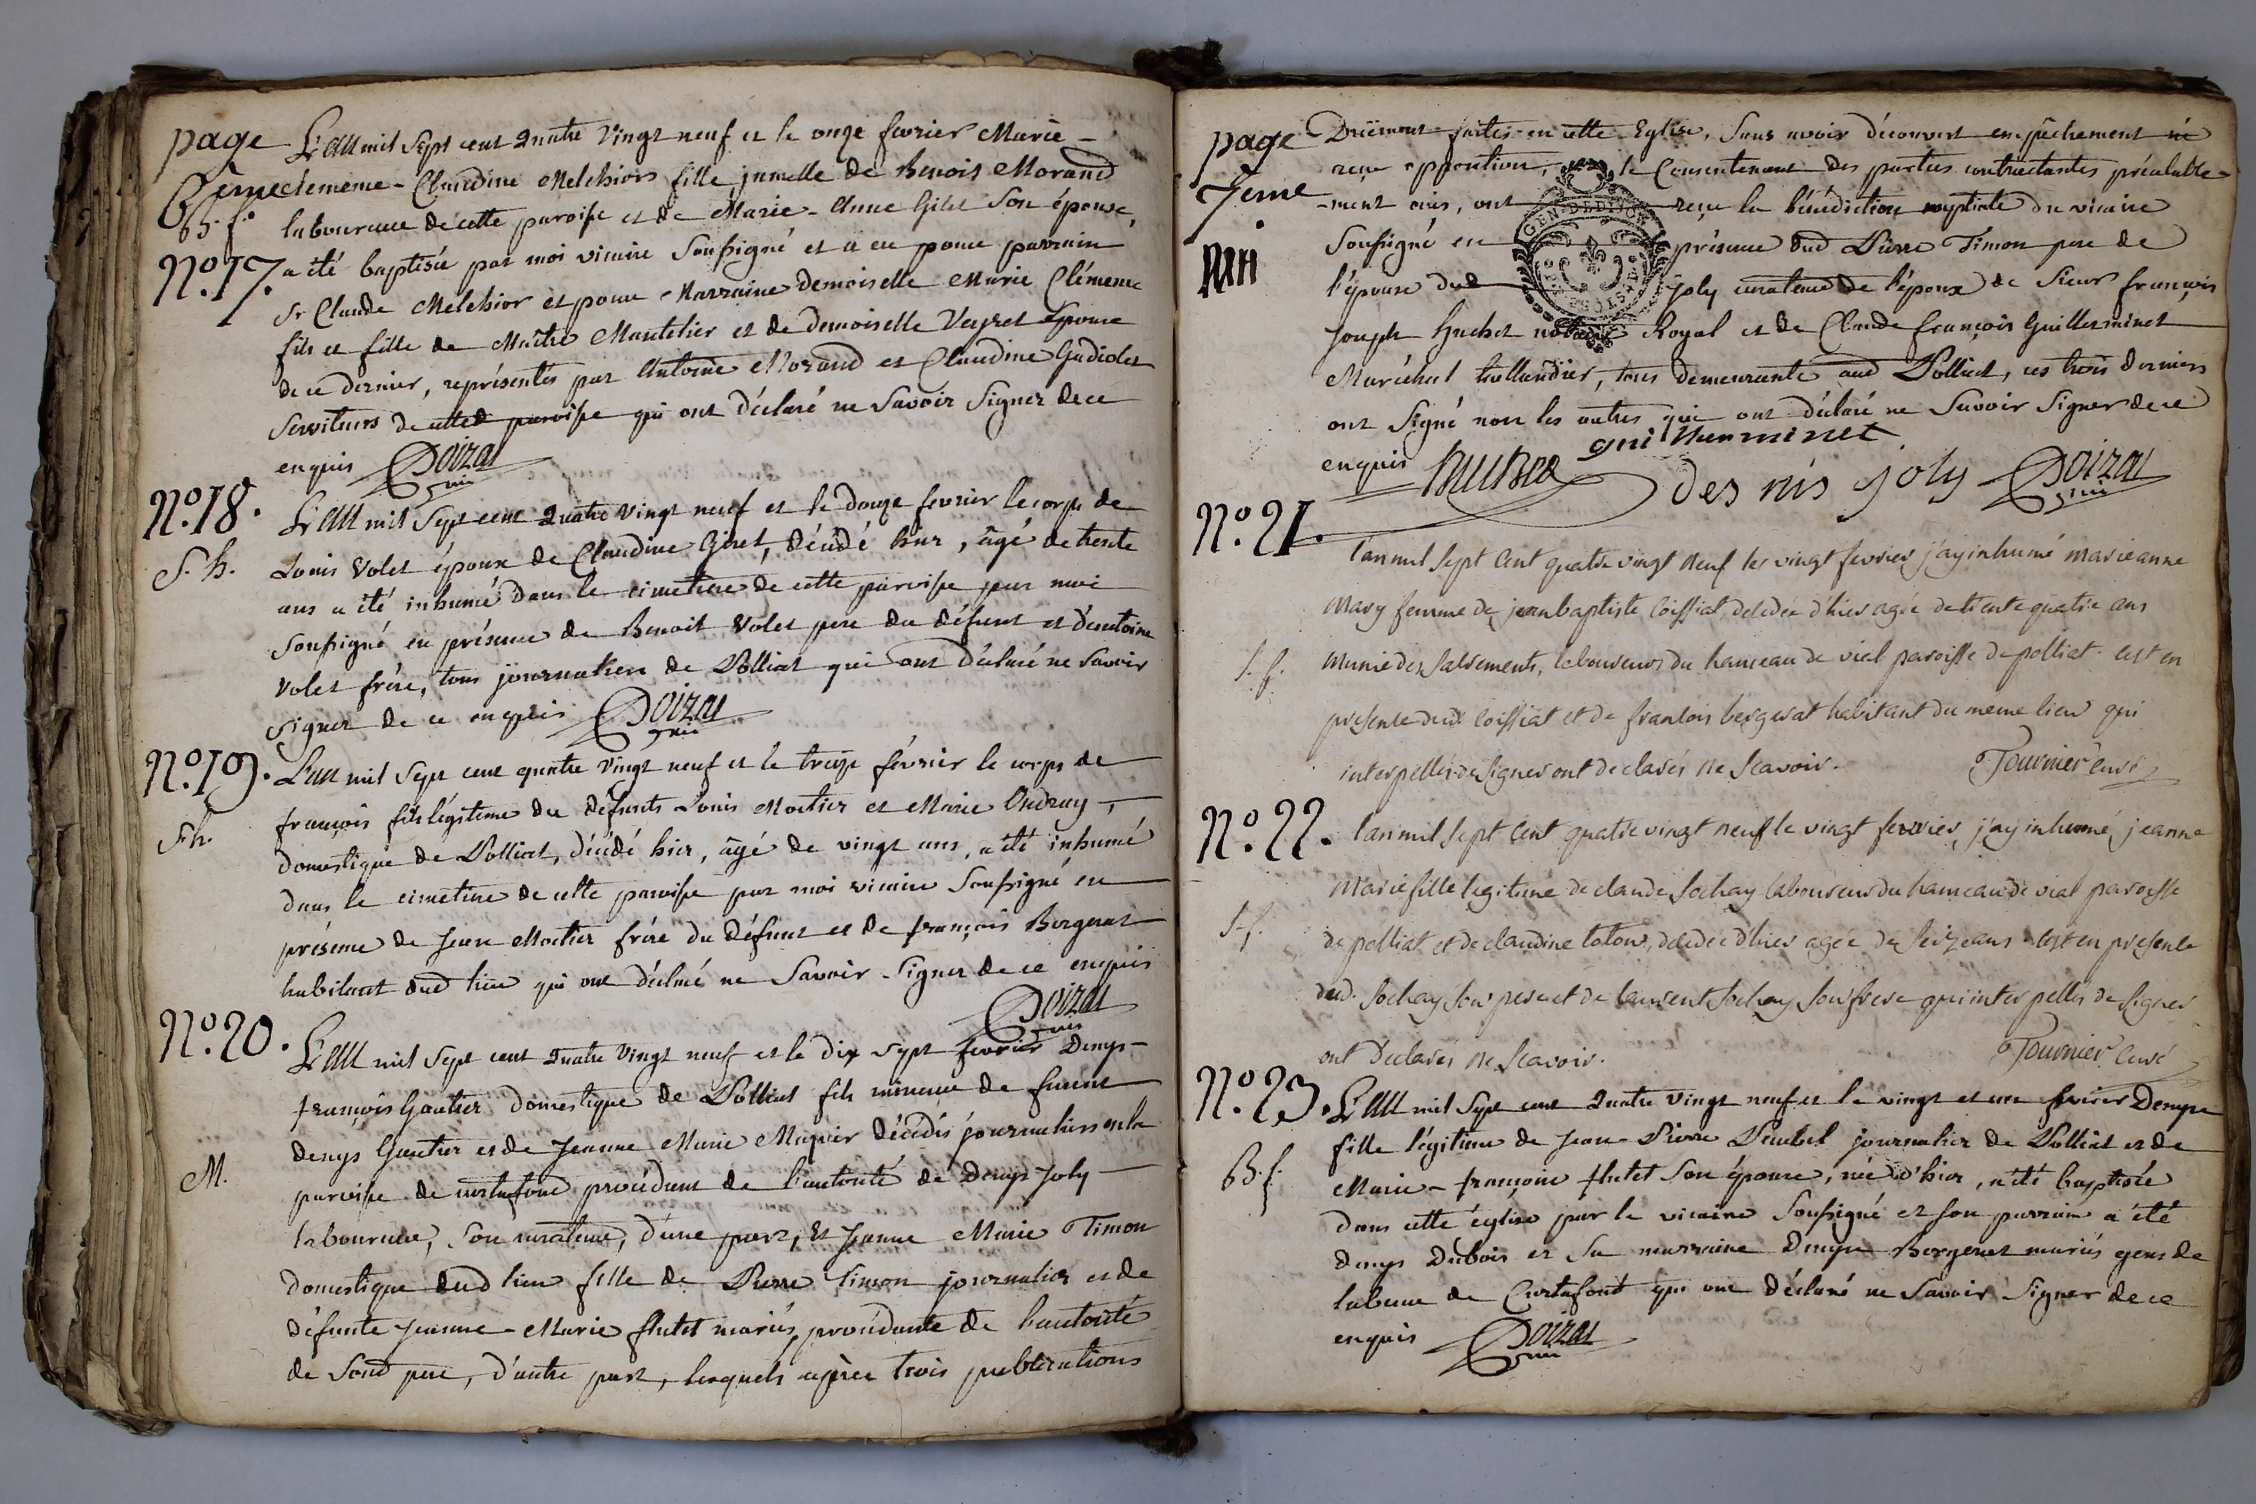 page
6eme
B. f.
N.o 17.
L'an mil sept cent quatre vingt neuf et le onze fevrier Marie-
clemence-Claudine Melchior fille jumelle de Benoit Morand
laboureur de cette paroisse et de Marie-Anne Gilet son épouse,
a été baptisée par moi vicaire soussigné et a eu pour parrain
Sr Claude Melchior et pour Marraine demoiselle Marie Clémence
fils et fille de Maître Mantelier et de demoiselle Veyret épouse
de ce dernier, représentés par Antoine Morand et Claudine Gadiolet
serviteurs de cette paroisse qui ont déclaré ne savoir signer de ce
enquis Doizat
vic
N.o 18.
S. h.
L'an mil sept cent quatre vingt neuf et le douze fevrier le corps de
Louis Volet époux de Claudine Giret, décédé hier, âgé de trente
ans a été inhumé dans le cimetiere de cette paroisse par moi
soussigné en présence de Benoit Volet pere du défunt et d'antoine
Volet frère, tous journaliers de Polliat qui ont déclaré ne savoir
signer de ce enquis Doizat
vic
N.o 19.
S. h.
L'an mil sept cent quatre vingt neuf et le treize février le corps de
françois fils légitime de défunts Louis Moctier et Marie Andruy,
domestique de Polliat, décédé hier, âgé de vingt ans, a été inhumé
dans le cimetiere de cette paroisse par moi vicaire soussigné en
présence de Jean Moctier frére du défunt et de françois Bergerat
habitant dud lieu qui ont déclaré ne savoir signer de ce enquis
Doizat
vic
N.o 20.
M.
L'an mil sept cent quatre vingt neuf et le dix sept fevrier Denys-
françois Gautier domestique de Polliat fils mineur de furent
denys Gautier et de Jeanne Marie Mayoir décédés journaliers en la
paroisse de curtafond procédant de l'autorité de Denys Joly
laboureur, son curateur, d'une part, Et Jeanne Marie Timon
domestique dud lieu fille de Pierre Timon journalier et de
défunte Jeanne-Marie flutet mariés, procédante de l'autorité
de sond pere, d'autre part, lesquels après trois publications
page
7eme
Duëment faites en cette Eglise, sans avoir découvert empêchement ni
reçu opposition, le Consentement des parties contractantes préalable-
-ment ouis, ont reçu la bénédiction nuptiale du vicaire
GEN. DE DIJON
soussigné en présence dud Pierre Timon pere de
l'épouse dud joly curateur de l'époux de Sieur françois
Joseph huchet notaire Royal et de Claude françois Guillerminet
Maréchal taillandier, tous demeurants aud Polliat, ces trois derniers
ont signé non les autres qui ont déclaré ne savoir signer de ce
enquis huchet guillerminet
denis joly Doizat
vic
N.o 21.
S. f.
l'an mil sept cent quatre vingt neuf le vingt fevrier j'ay inhumé marieanne
mary femme de jeanbaptiste coiffiat, decedée d'hier agée de trente quatre ans
munie des sacrements, laboureur du hameau de viel paroisse de polliat. cest en
presence dud. coiffiat et de francois bergerat habitant du meme lieu qui
interpellés de signer ont declarés ne scavoir. Tournier curé
N.o 22.
S. f.
l'an mil sept cent quatre vingt neuf le vingt fevrier, j'ay inhumé, jeanne
marie fille legitime de claude sochay laboureur du hameau de vial paroisse
de polliat et de claudine coton, decedée d'hier agée de seize ans. c'est en presence
dud. sochay son pere et de laurent sochay son frere qui interpellés de signer
ont déclarés ne scavoir. Tournier curé
N.o 23.
B. f.
L'an mil sept cent quatre vingt neuf et le vingt et un fevrier Denyse
fille légitime de Jean-Pierre journalier de Polliat et de
Marie-françoise flutet son épouse, née d'hier, a été baptisée
dans cette église par le vicaire soussigné et son parrain a été
denys Dubois et sa marraine Denyse Bergerat mariés gens de
labeur de Curtafond qui ont déclaré ne savoir signer de ce
enquis Doizat
vic